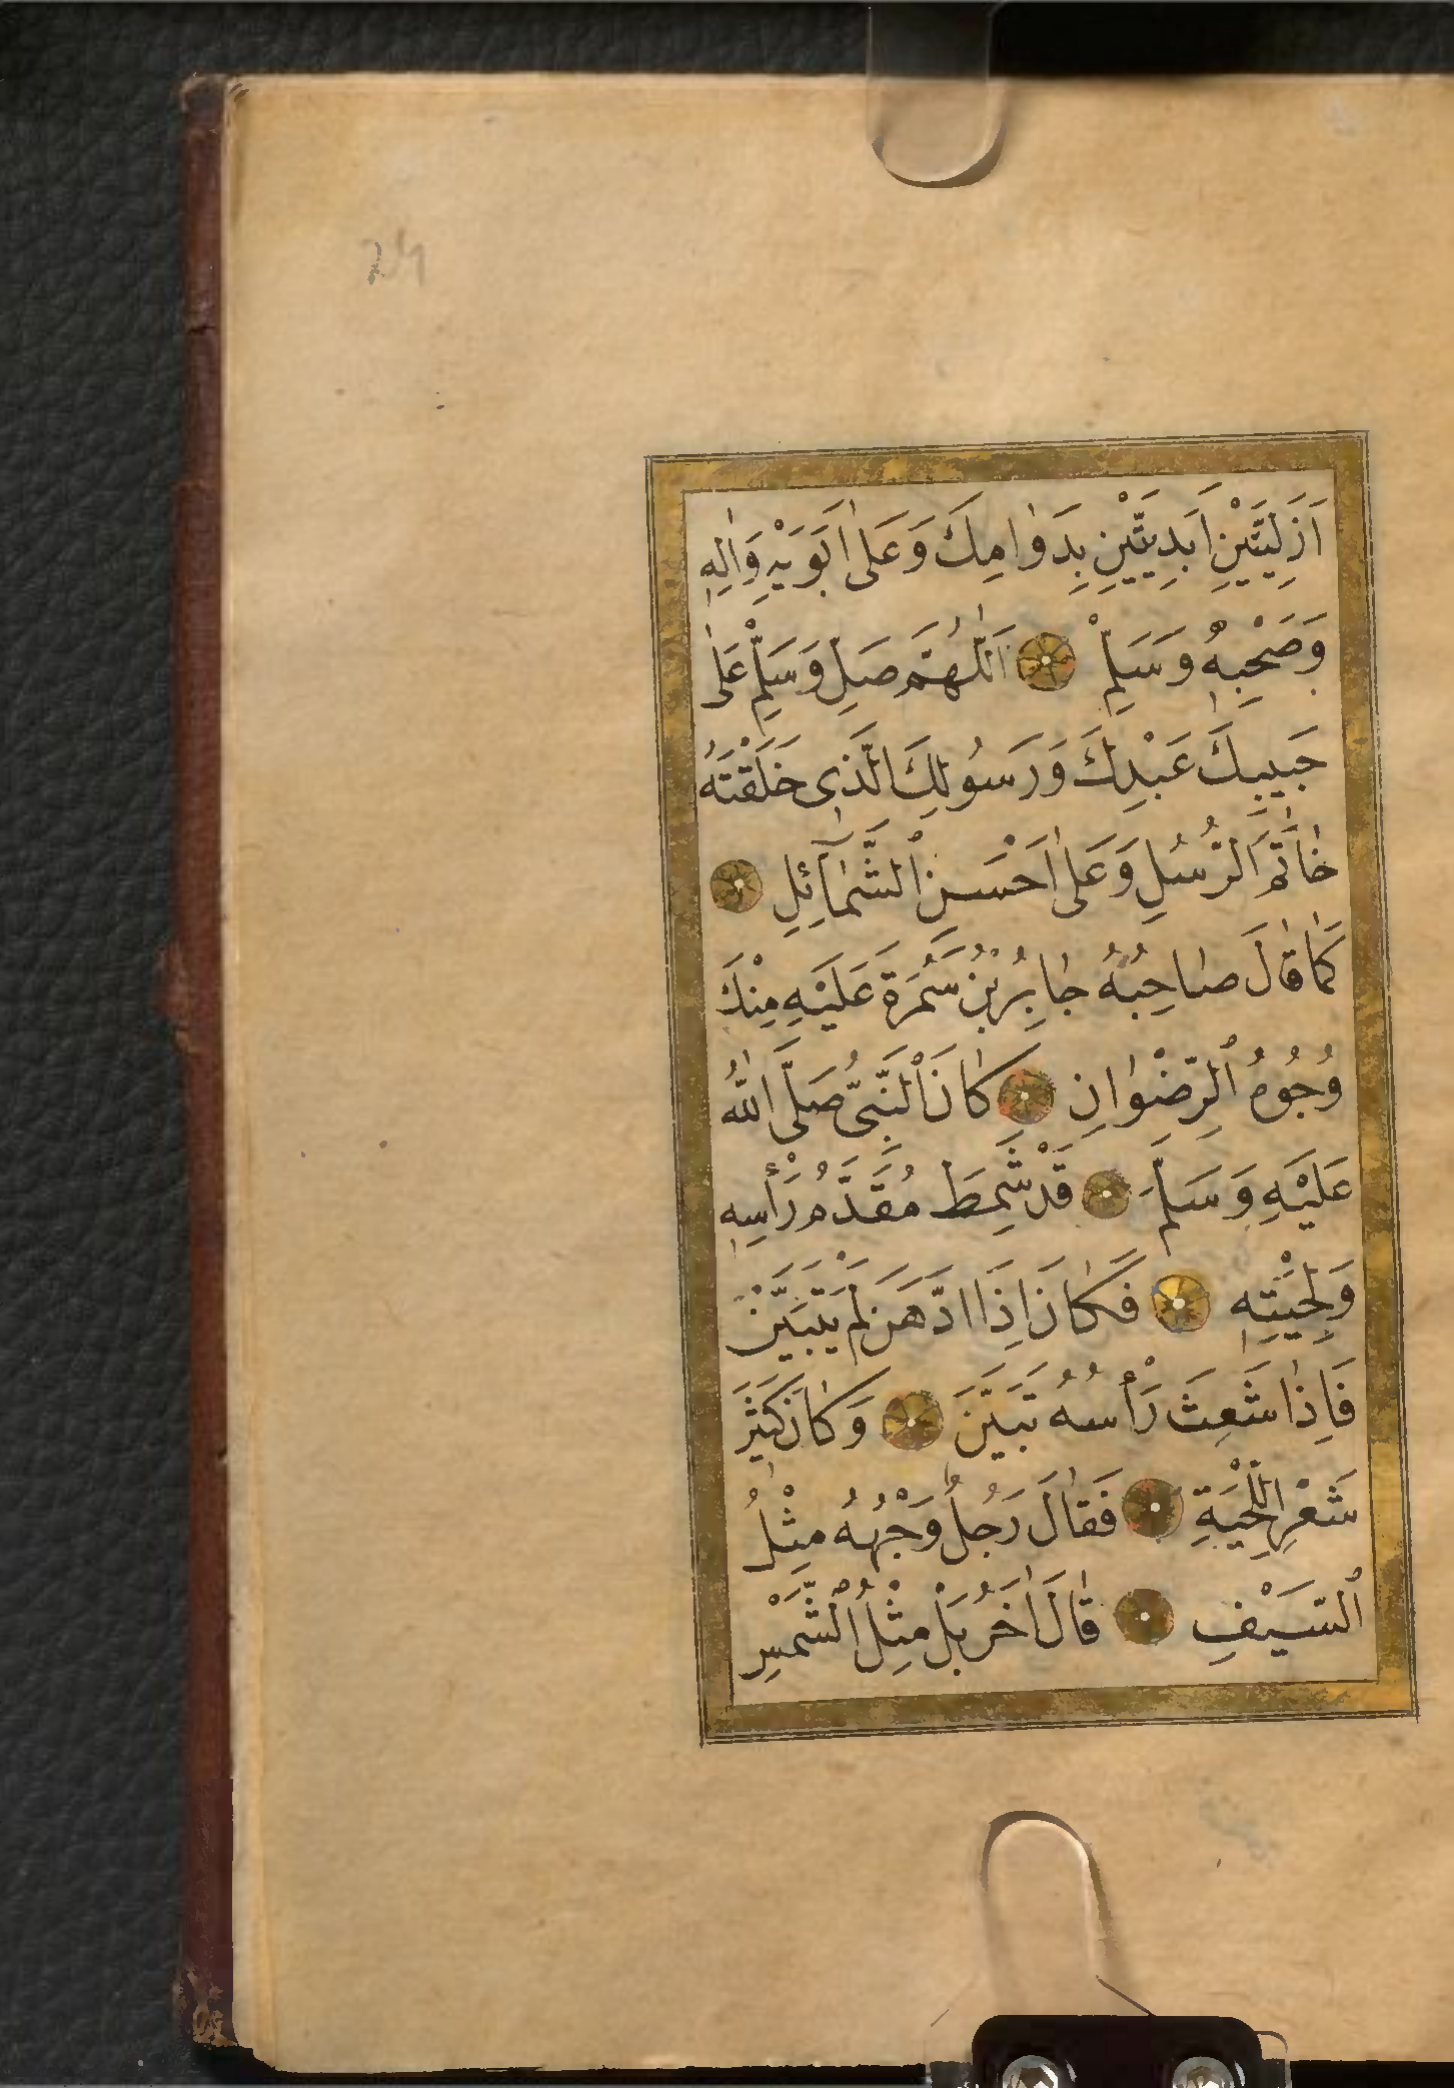 24
اَزَلِيَّتَيْنِ اَبَدِيَّتَيْنِ بِدَوٰامِكَ وَعَلٰى اَبَوَيْهِ وَاٰلِهٖ
وَصَحْبِهٖ وَسَلِّمْ اَللّٰهُمَّ صَلِّ وَسَلِّمْ عَلٰى
حَبِيبِكَ عَبْدِكَ وَرَسُولِكَ الَّذٖى خَلَقْتَهُ
خٰاتَمَ الرُّسُلِ وَعَلٰى اَحْسَنِ ٱلشَّمٰآئِلِ
كَمٰا قٰالَ صٰاحِبُهُ جٰابِرُ بْنُ سَمُرَةَ عَلَيْهِ مِنْكَ
وُجُوهُ ٱلرِّضْوٰانِ كٰانَ ٱلنَّبِىُّ صَلَّى اللّٰهُ
عَلَيْهِ وَسَلَّمَ قَدْ شَمِطَ مُقَدَّمُ رَأْسِهٖ
وَلِحْيَتِهٖ فَكٰانَ اِذَا ادَّهَنَ لَمْ يَتَبَيَّنْ
فَاِذٰا شَعِثَ رَأْسُهُ تَبَيَّنَ وَكٰانَ كَثٖيرَ
شَعْرِ اللِّحْيَةِ فَقٰالَ رَجُلٌ وَجْهُهُ مِثْلُ
ٱلسَّيْفِ قٰالَ اٰخَرُ بَلْ مِثْلُ ٱلشَّمْسِ